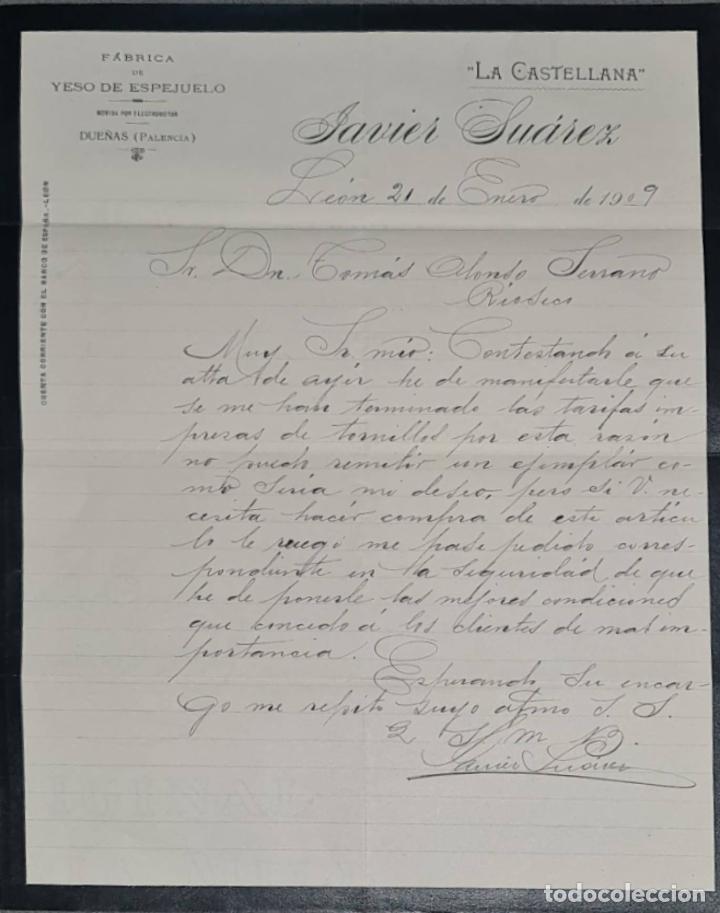 FÁBRICA
DE
YESO DE ESPEJUELO
MOVIDA POR ELECTROMOTOR
DUEÑAS (PALENCIA)
"LA CASTELLANA"
Javier Suárez
León 21 de Enero de 1909
CUENTA CORRIENTE CON EL BANCO DE ESPAÑA.-LEON
Sr. Dn. Tomás Alonso Serrano
Rioseco
Muy Sr. mio: Contestando á su
atta de ayér he de manifestarle que
se me han terminado las tarifas im-
presas de tornillos por esta razón
no puedo remitir un ejemplár co-
mo seria mi deseo, pero si V. ne-
cesita hacér compra de este artícu
lo le ruego me pase pedido corres-
pondiente en la seguridád de que
he de ponerle las mejores condiciones
que concedo á los clientes de mas im-
portancia.
Esperando su encar-
go me repito suyo atmo S. S.
Q S. M. B.
Javier Suárez
todocoleccion.net